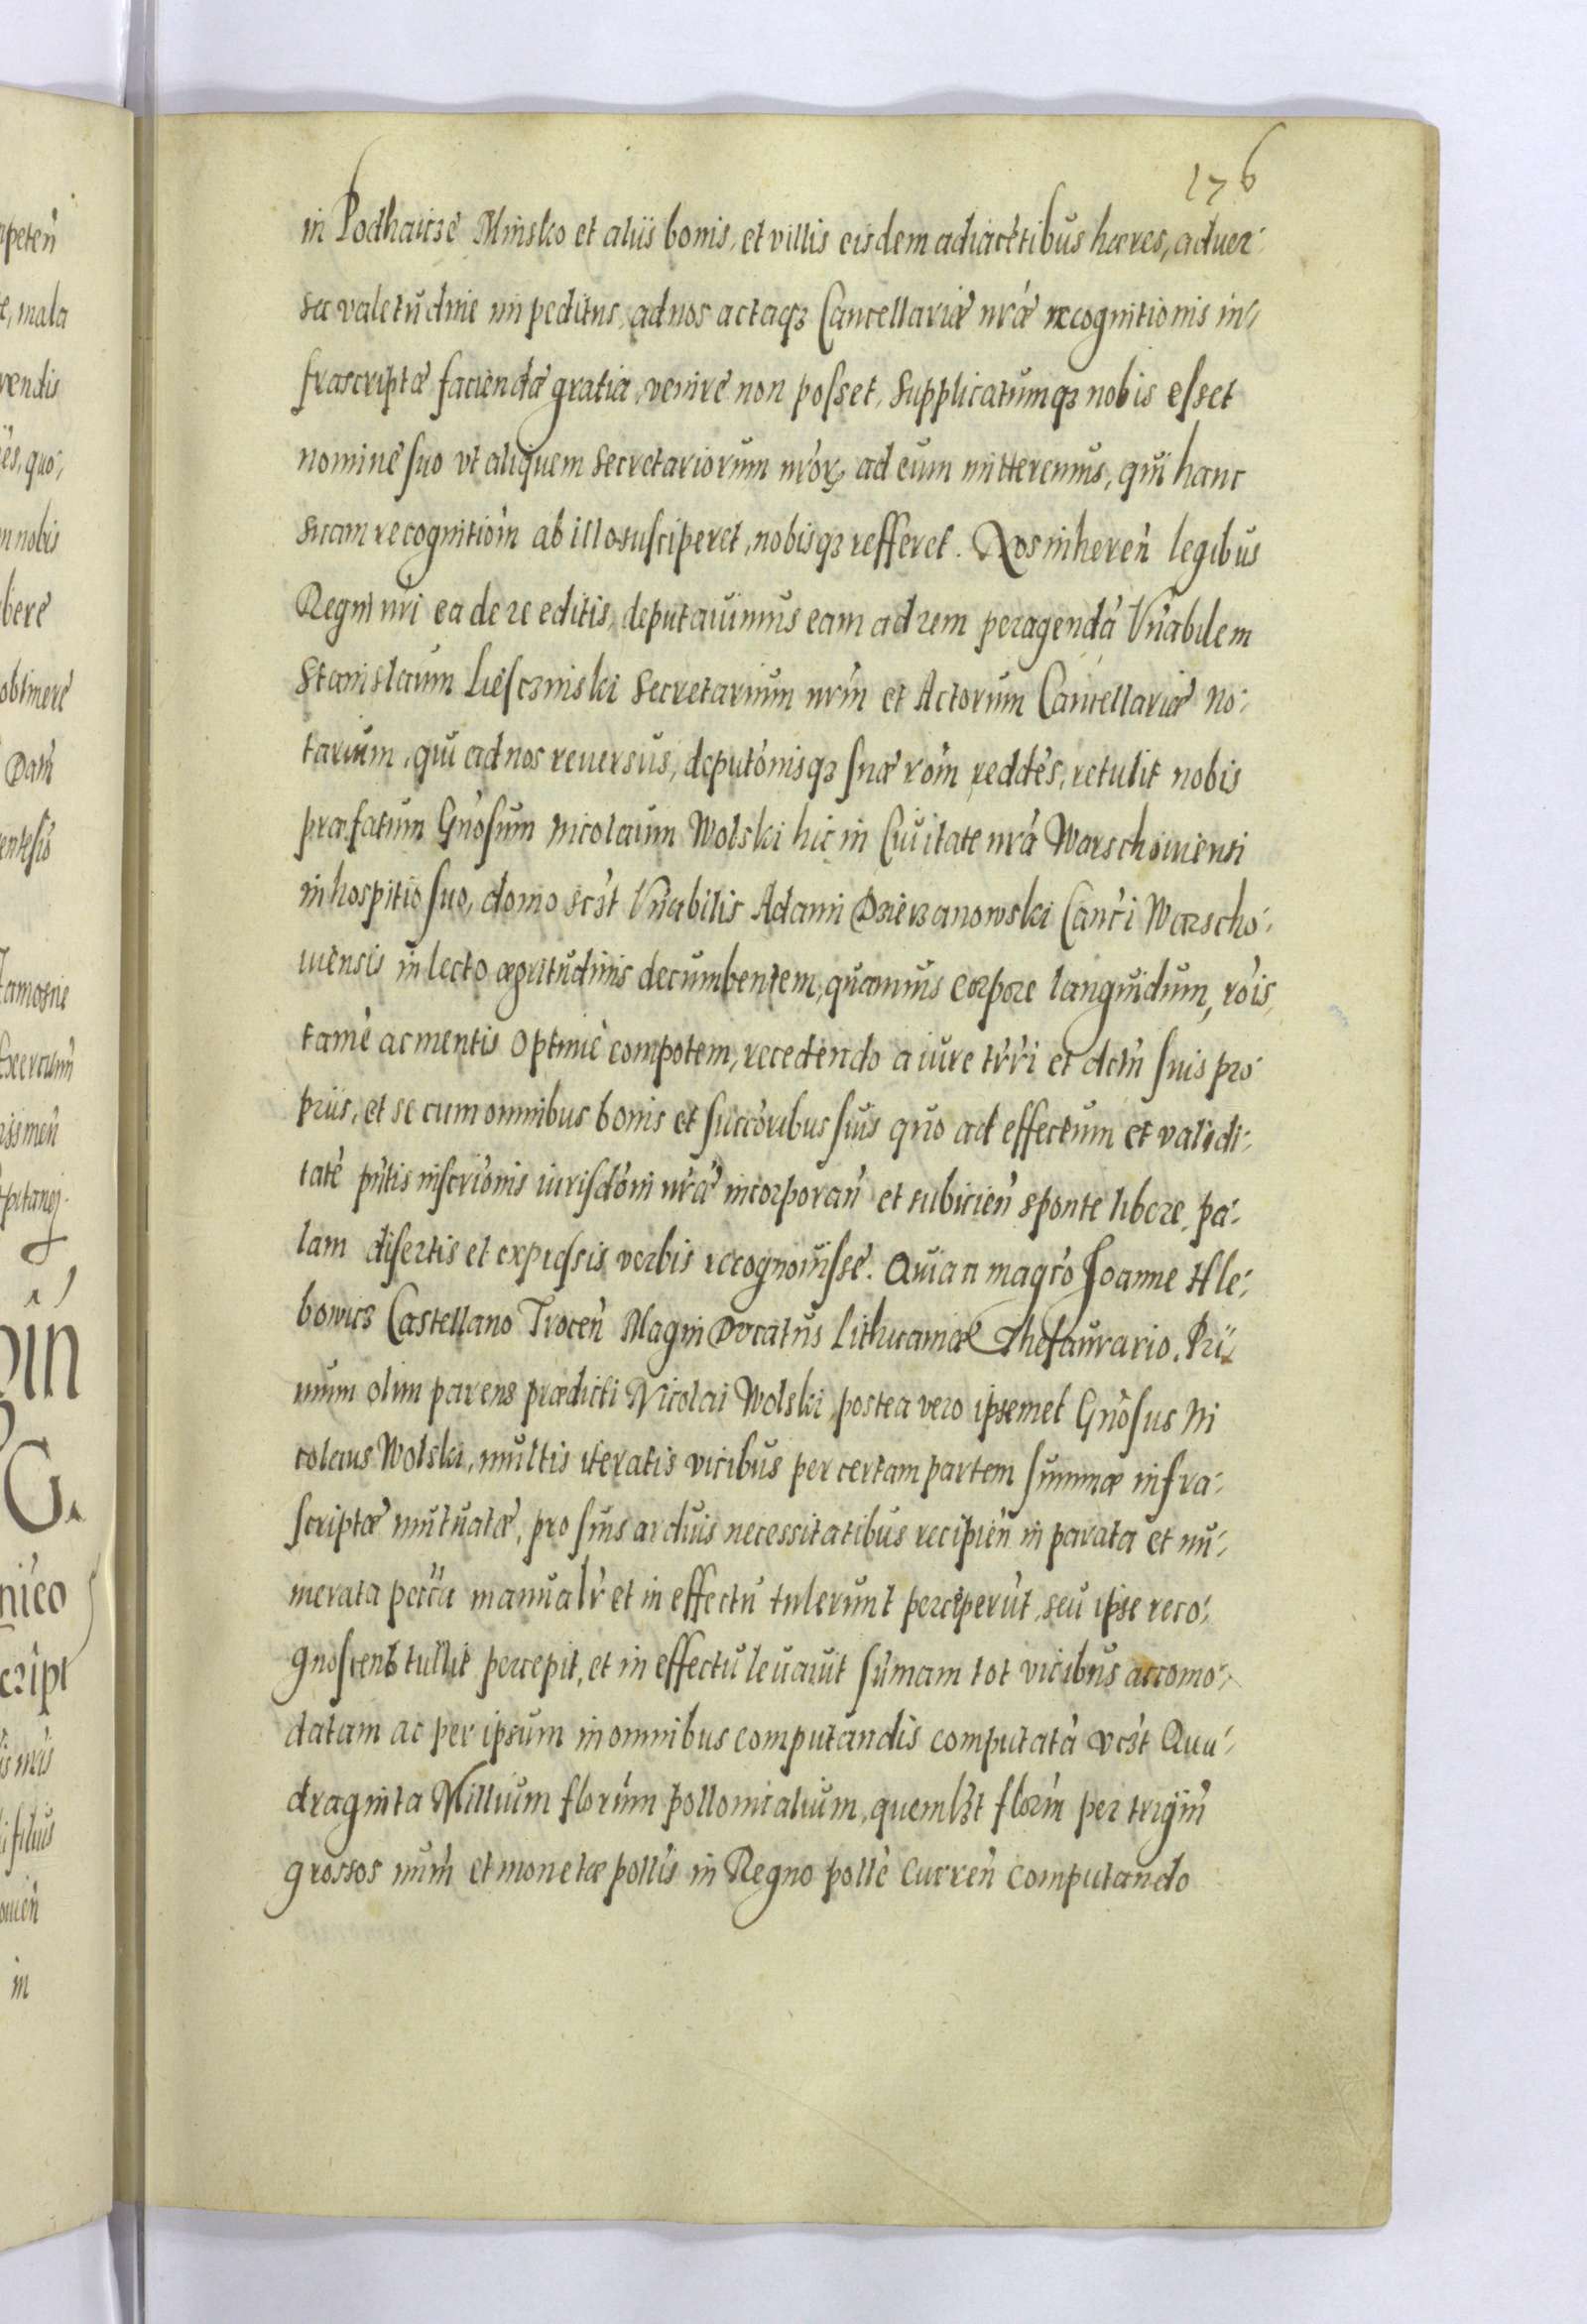 176
in Podhaicze Minsko et aliis bonis, et villis eisdem adiacẽtibus hæres, aduer-
sa valetudine impeditus, ad nos actaq3 Cancellariæ nr̃æ recognitionis in-
frascriptæ faciendæ gratia, venire non posset, supplicatumq3 nobis esset
nomine suo vt aliquem Secretariorum nr̃oꝝ ad eum mitteremus, qui hanc
suam recognitiom̃ ab illo susciperet, nobisq3 refferet. Nos inheren̄ legibus
Regni nr̃i ea de re editis, deputauimus eam ad rem peragendã Vn̄abilem
Stanislaum Liesczinski Secretarium nrm̃ et Actorum Cancellariæ No-
tarium, qui ad nos reuersus, deputõnisq3 suæ rõm reddẽs, retulit nobis
præfatum Gn̄osum Nicolaum Wolski hic in Ciuitate nr̃a Warschouiensi
in hospitio suo, domo sc3t Vn̄abilis Adami Dzierzanowski Canc̃i Warscho-
uiensis in lecto ægritudinis decumbentem, quamuis corpore languidum, rõis
tamẽ ac mentis optime compotem, recedendo a iure trr̃i et dctm̃ suis pro-
priis, et se cum omnibus bonis et succõribus suis quo ad effectum et validi-
tatẽ pn̄tis inscriõnis iurisdõni nr̃æ incorporan̄ et subicien̄ sponte libere, pa-
lam disertis et expressis verbis recognouisse. Quia a magc̃o Joanne Hle-
bowicz Castellano Trocen̄ Magni Ducatus Lithuaniæ Thesaurario. Pri-
mum olim parens prædicti Nicolai Wolski, postea vero ipsemet Gn̄osus Ni
colaus Wolski, multis iteratis vicibus per certam partem summæ infra-
scriptæ mutuatæ, pro suis arduis necessitatibus recipien̄ in parata et nu-
merata pecc̃a manualr̃ et in effectu tulerunt perceperũt, seu ipse reco-
gnoscens tullit percepit, et in effectu leuauit sum̃am tot vicibus accomo-
datam ac per ipsum in omnibus computandis computatã vc3t Qua-
draginta Millium florum̃ pollonicalium, quemlꝫt florm̃ per trigm̃
grossos num̃ et monetæ poll̃is in Regno poll̃e curren̄ computando